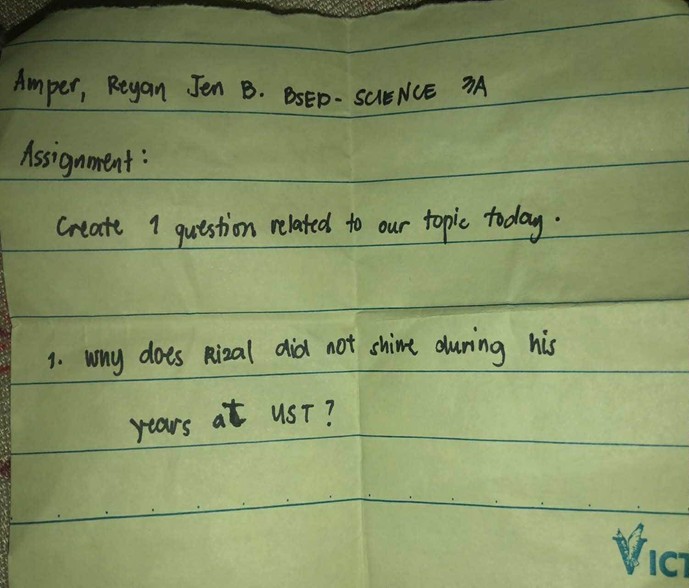 Amper, Reyan Jen B. BSED- SCIENCE 3A
Assignment:
Create 1 question related to our topic today.
1. Why does Rizal did not shine during his
years at UST?
VICT